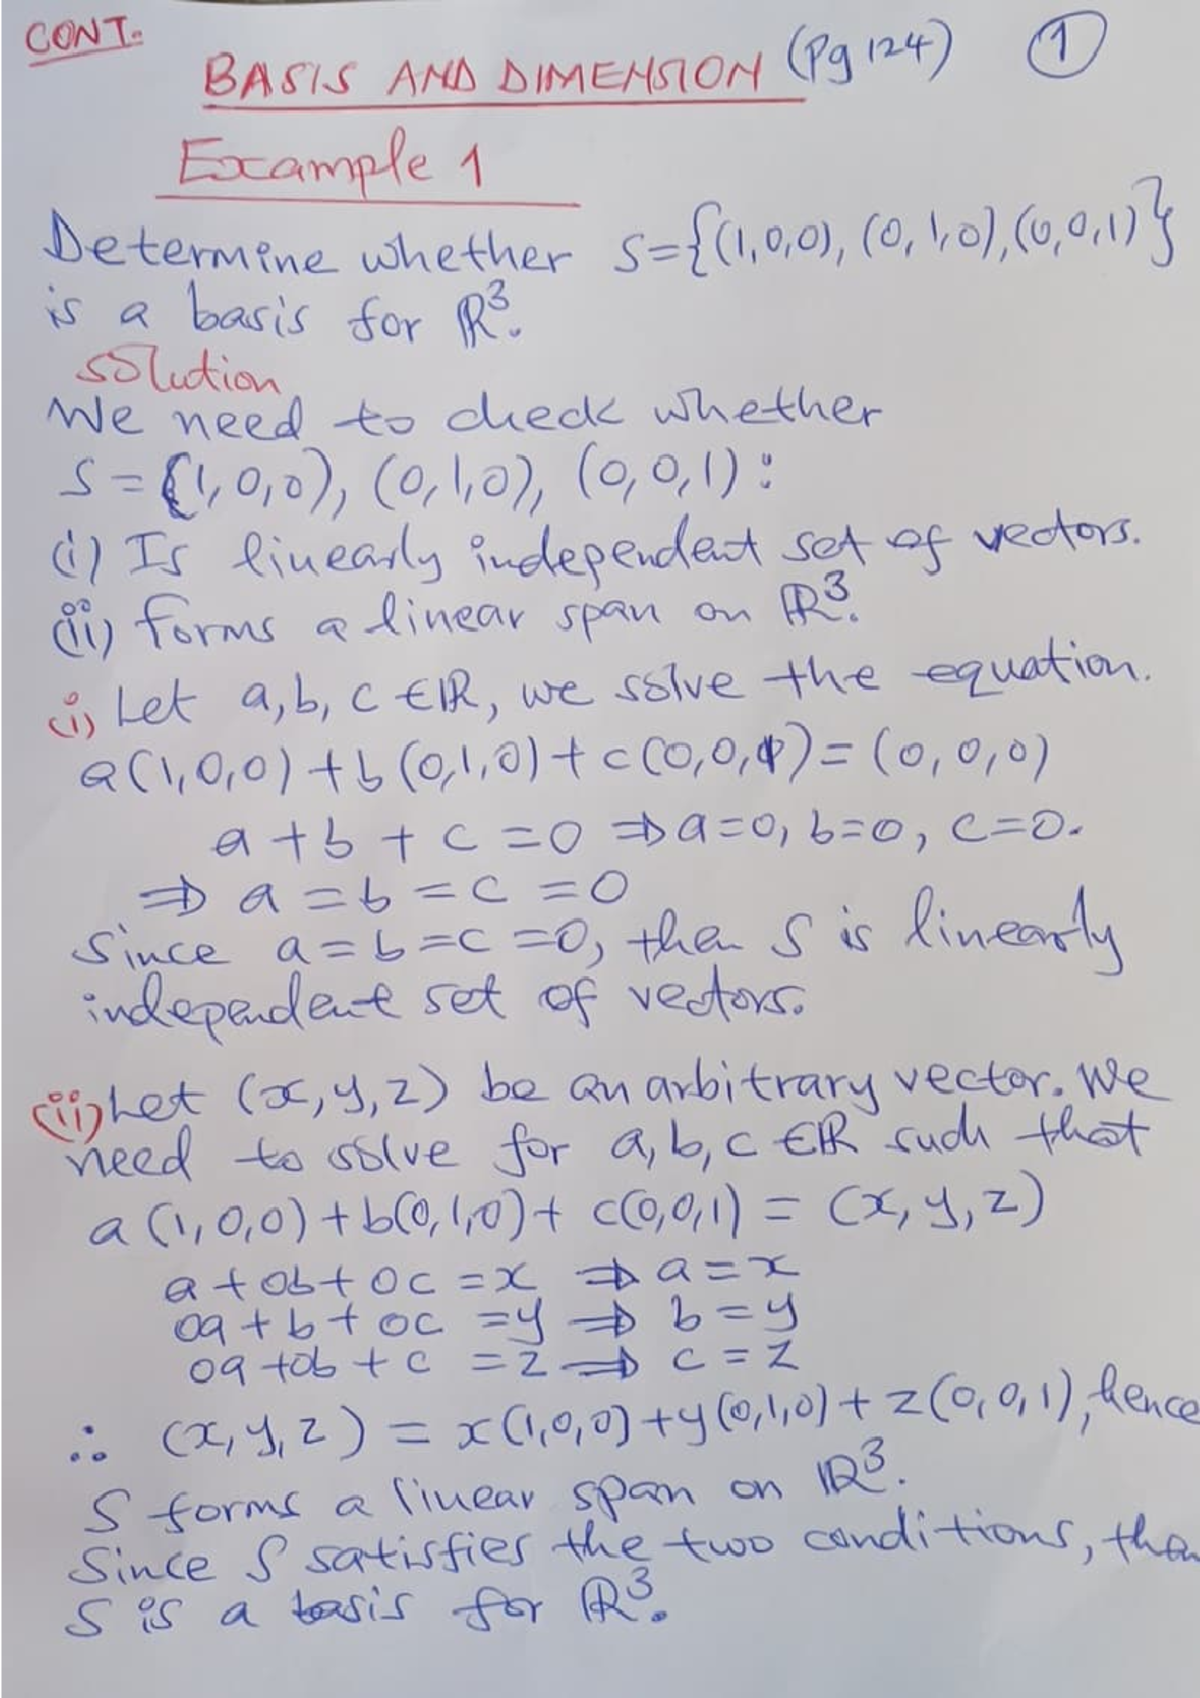 CONT.
BASIS AND DIMENSION (Pg 124) 1
Example 1
Determine whether S={(1,0,0), (0,1,0),(0,0,1)}
is a basis for ℝ³.
solution
We need to check whether
S={1,0,0), (0,1,0), (0,0,1):
(i) Is linearly independent set of vectors.
(ii) forms a linear span on ℝ³.
(i) Let a,b,c ∈ℝ, we solve the equation.
a(1,0,0)+b(0,1,0)+c(0,0,1)=(0,0,0)
a+b+c=0 ⇒a=0, b=0, c=0.
⇒ a=b=c=0
Since a=b=c=0, then S is linearly
independent set of vectors.
(ii) Let (x,y,z) be an arbitrary vector. We
need to solve for a,b,c ∈ℝ such that
a(1,0,0)+b(0,1,0)+c(0,0,1)=(x,y,z)
a+0b+0c=x ⇒ a=x
0a+b+0c=y ⇒ b=y
0a+0b+c=z ⇒ c=z
∴ (x,y,z)=x(1,0,0)+y(0,1,0)+z(0,0,1), hence
S forms a linear span on ℝ³.
Since S satisfies the two conditions, then
S is a basis for ℝ³.